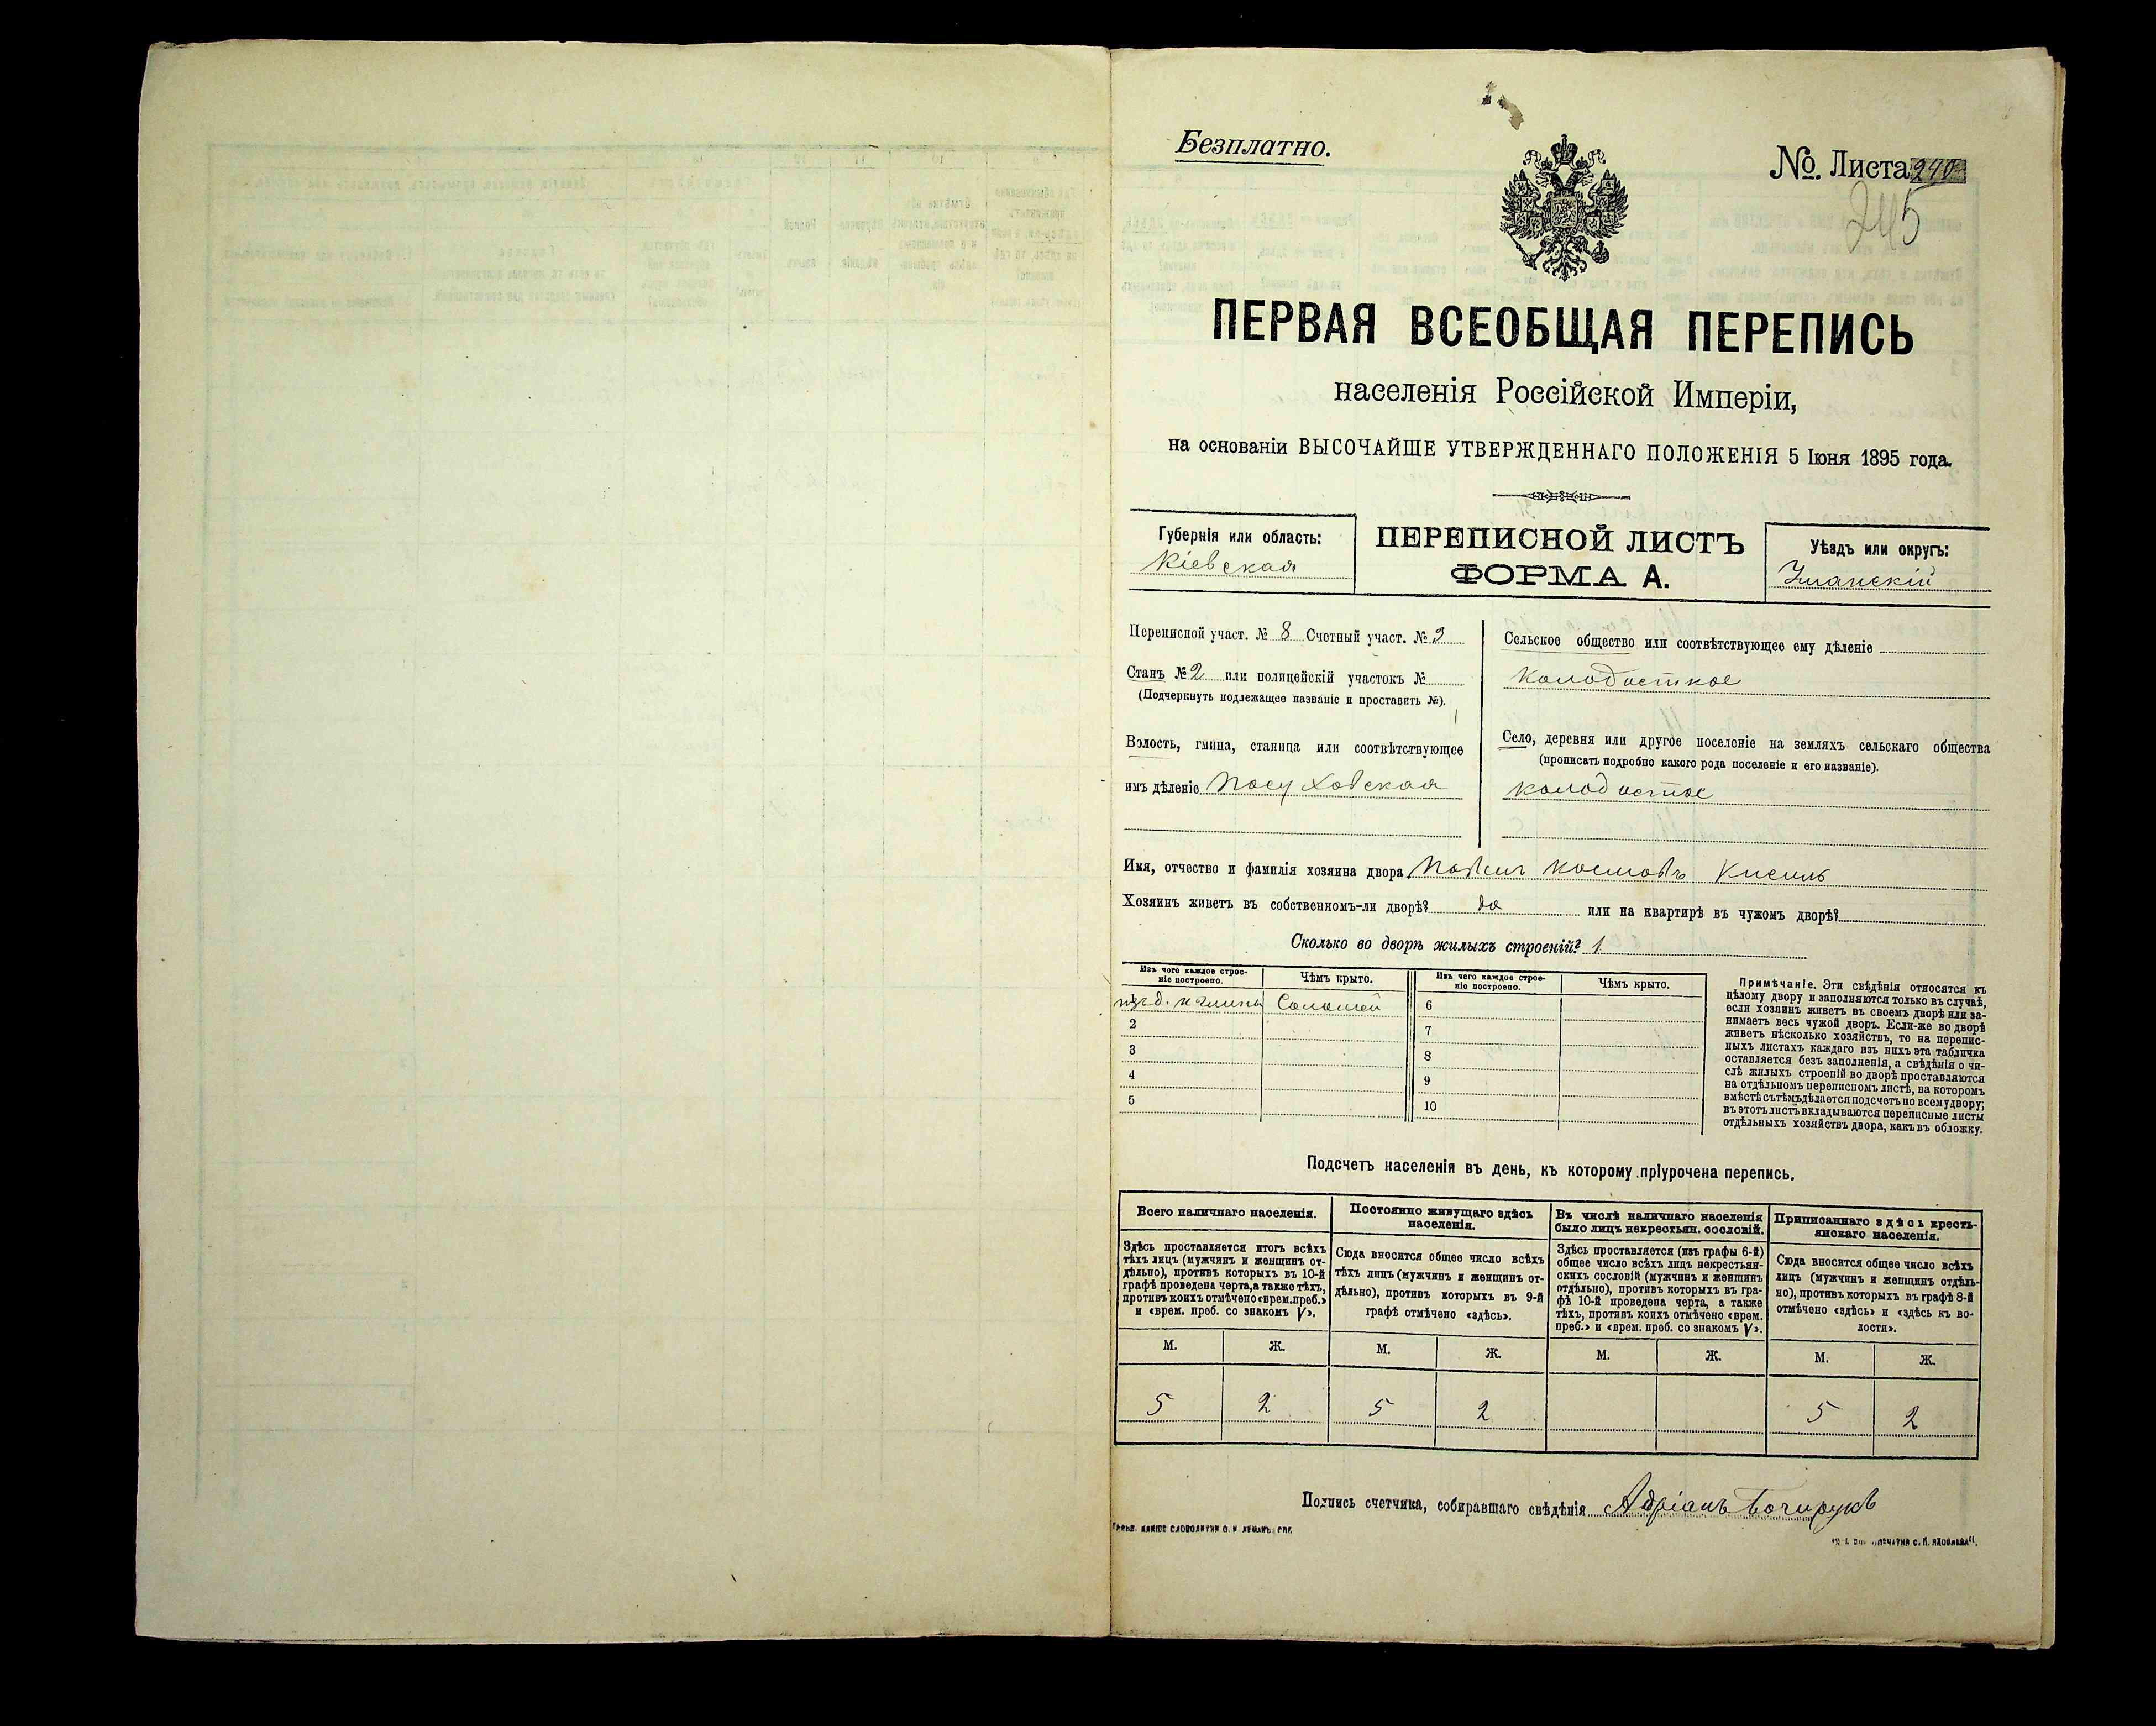 Безплатно.
№. Листа 240
245
ПЕРВАЯ ВСЕОБЩАЯ ПЕРЕПИСЬ
населенія Россійской Имперіи,
на основаніи ВЫСОЧАЙШЕ УТВЕРЖДЕННАГО ПОЛОЖЕНІЯ 5 Іюня 1895 года.
Губернія или область:
Кіевская
ПЕРЕПИСНОЙ ЛИСТЪ
ФОРМА А.
Уѣздъ или округъ:
Уманскій
Переписной участ. № 8 Счетный участ. №
Станъ № 2 или полицейскій участокъ №
(Подчеркнуть подлежащее названіе и проставить №).
Волость, гмина, станица или соотвѣтствующее
имъ дѣленіе Посуховская
Сельское общество или соотвѣтствующее ему дѣленіе
Колодисткое
Село, деревня или другое поселеніе на земляхъ сельскаго общества
(прописать подробно какого рода поселеніе и его названіе).
колодистое
Имя, отчество и фамилія хозяина двора Кисиль
Хозяинъ живетъ въ собственномъ-ли дворѣ? да или на квартирѣ въ чужомъ дворѣ?
Сколько во дворѣ жилыхъ строеній? 1.
Изъ чего каждое строе-
ніе построено.
Чѣмъ крыто.
Изъ чего каждое строе-
ніе построено.
Чѣмъ крыто.
1 изъ д. и глины Соломой 6
2 7
3 8
4 9
5 10
Примѣчаніе. Эти свѣдѣнія относятся къ
цѣлому двору и заполняются только въ случаѣ,
если хозяинъ живетъ въ своемъ дворѣ или за-
нимаетъ весь чужой дворъ. Если-же во дворѣ
живетъ нѣсколько хозяйствъ, то на перепис-
ныхъ листахъ каждаго изъ нихъ эта табличка
оставляется безъ заполненія, а свѣдѣнія о чи-
слѣ жилыхъ строеній во дворѣ проставляются
на отдѣльномъ переписномъ листѣ, на которомъ
вмѣстѣ съ тѣмъ дѣлается подсчетъ по всему двору;
въ этотъ листъ вкладываются переписные листы
отдѣльныхъ хозяйствъ двора, какъ въ обложку.
Подсчетъ населенія въ день, къ которому пріурочена перепись.
Всего наличнаго населенія.
Здѣсь проставляется итогъ всѣхъ
тѣхъ лицъ (мужчинъ и женщинъ от-
дѣльно), противъ которыхъ въ 10-й
графѣ проведена черта, а также тѣхъ,
противъ коихъ отмѣчено «врем. преб.»
и «врем. преб. со знакомъ V».
Постоянно живущаго здѣсь
населенія.
Сюда вносится общее число всѣхъ
тѣхъ лицъ (мужчинъ и женщинъ от-
дѣльно), противъ которыхъ въ 9-й
графѣ отмѣчено «здѣсь».
Въ числѣ наличнаго населенія
было лицъ некрестьян. сословій.
Здѣсь проставляется (изъ графы 6-й)
общее число всѣхъ лицъ некрестьян-
скихъ сословій (мужчинъ и женщинъ
отдѣльно), противъ которыхъ въ гра-
фѣ 10-й проведена черта, а также
тѣхъ, противъ коихъ отмѣчено «врем.
преб.» и «врем. преб. со знакомъ V».
Приписаннаго здѣсь кресть-
янскаго населенія.
Сюда вносится общее число всѣхъ
лицъ (мужчинъ и женщинъ отдѣль-
но), противъ которыхъ въ графѣ 8-й
отмѣчено «здѣсь» и «здѣсь къ во-
лости».
М. Ж. М. Ж. М. Ж. М. Ж.
5 2 5 2 5 2
Подпись счетчика, собиравшаго свѣдѣнія Адріанъ